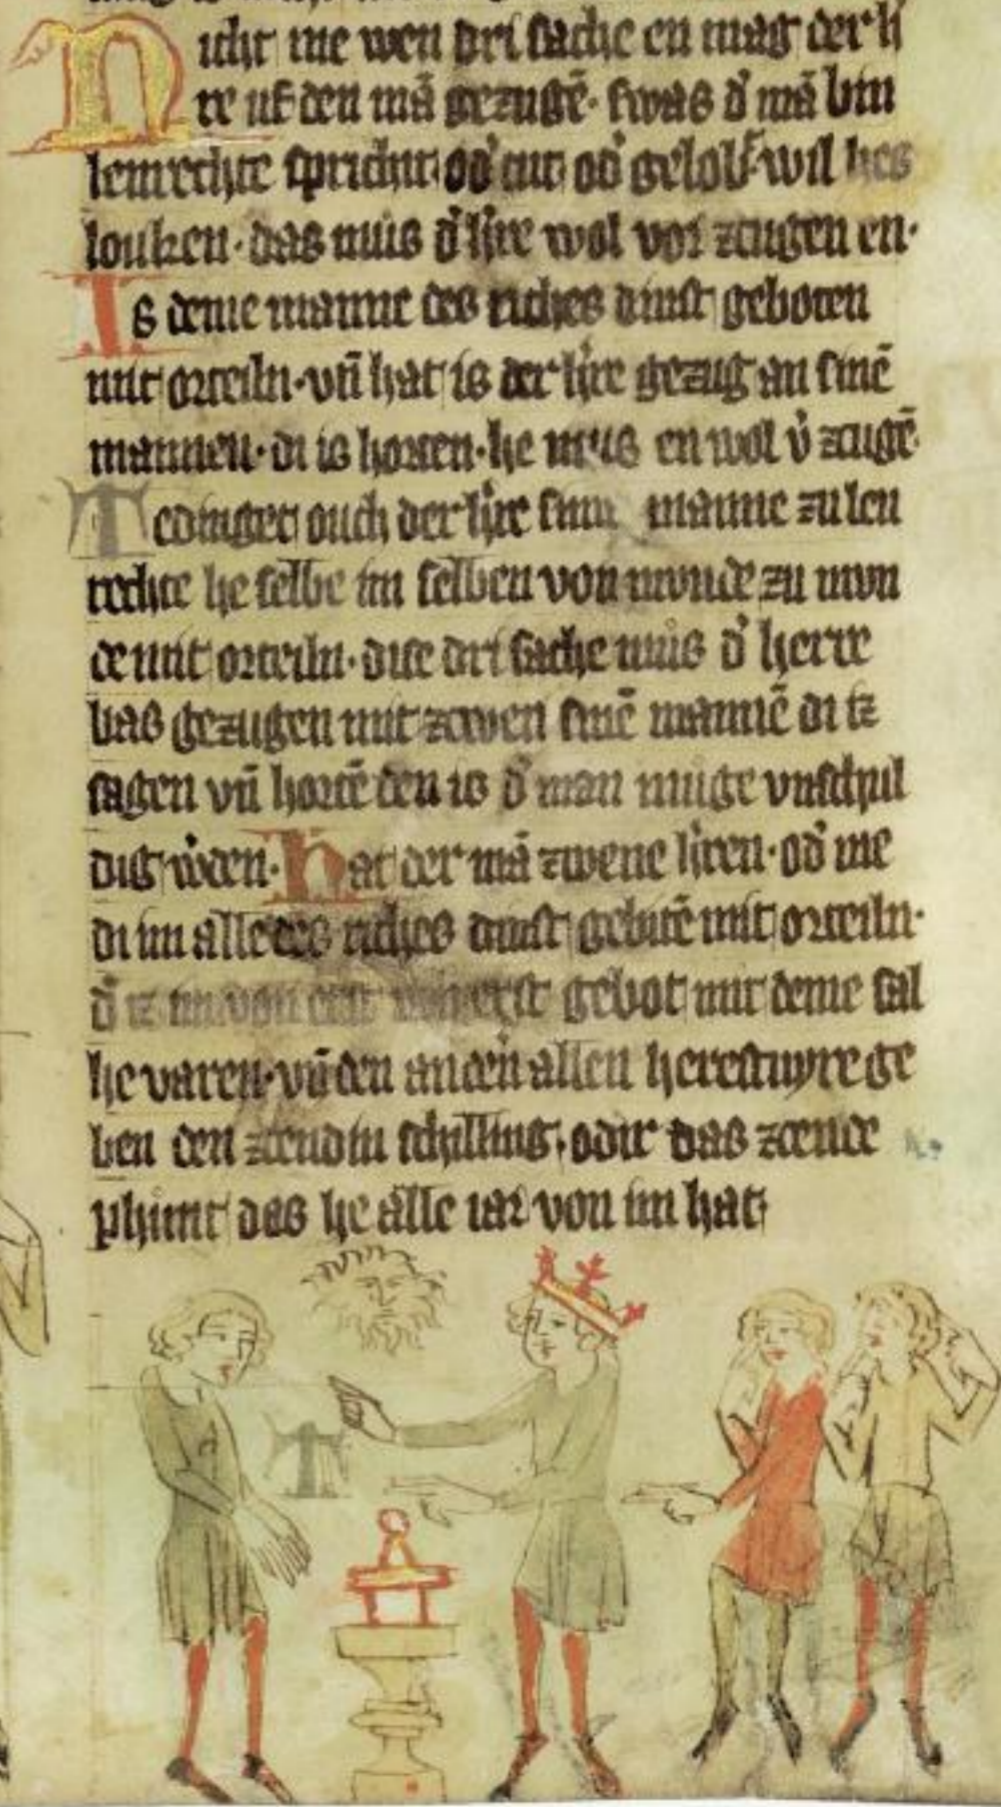 Nicht me wen dri sache en mag der h'
re uf den mā gezugē· swas d' mā bin
lenrechte spricht od' tut od' gelobt· wil hes
louken· das mus d' h're wol vor zugen en·
Is deme manne des riches dinst geboten
mit orteiln· vn̄ hat is der h're gezug an sinē
mannen· di is horten· he mus en wol v' zugē·
Tedinget ouch der h're sim manne zu len
rechte he selbe im selben von munde zu mun
de mit orteiln· dise dri sache mus d' herre
bas gezugen mit zcwen sinē mannē di iz
sagen vn̄ hortē den is d' man muge vnschul
dig w'den· Hat der mā zwene h'ren· od' me
di im alle des riches dinst gebitē mit orteiln·
d' iz im von erst gebot mit deme sal
he varen· vn̄ den anden allen herestuyre ge
ben den zcendin schilling· odir das zcende
phunt das he alle iar von im hat·
T